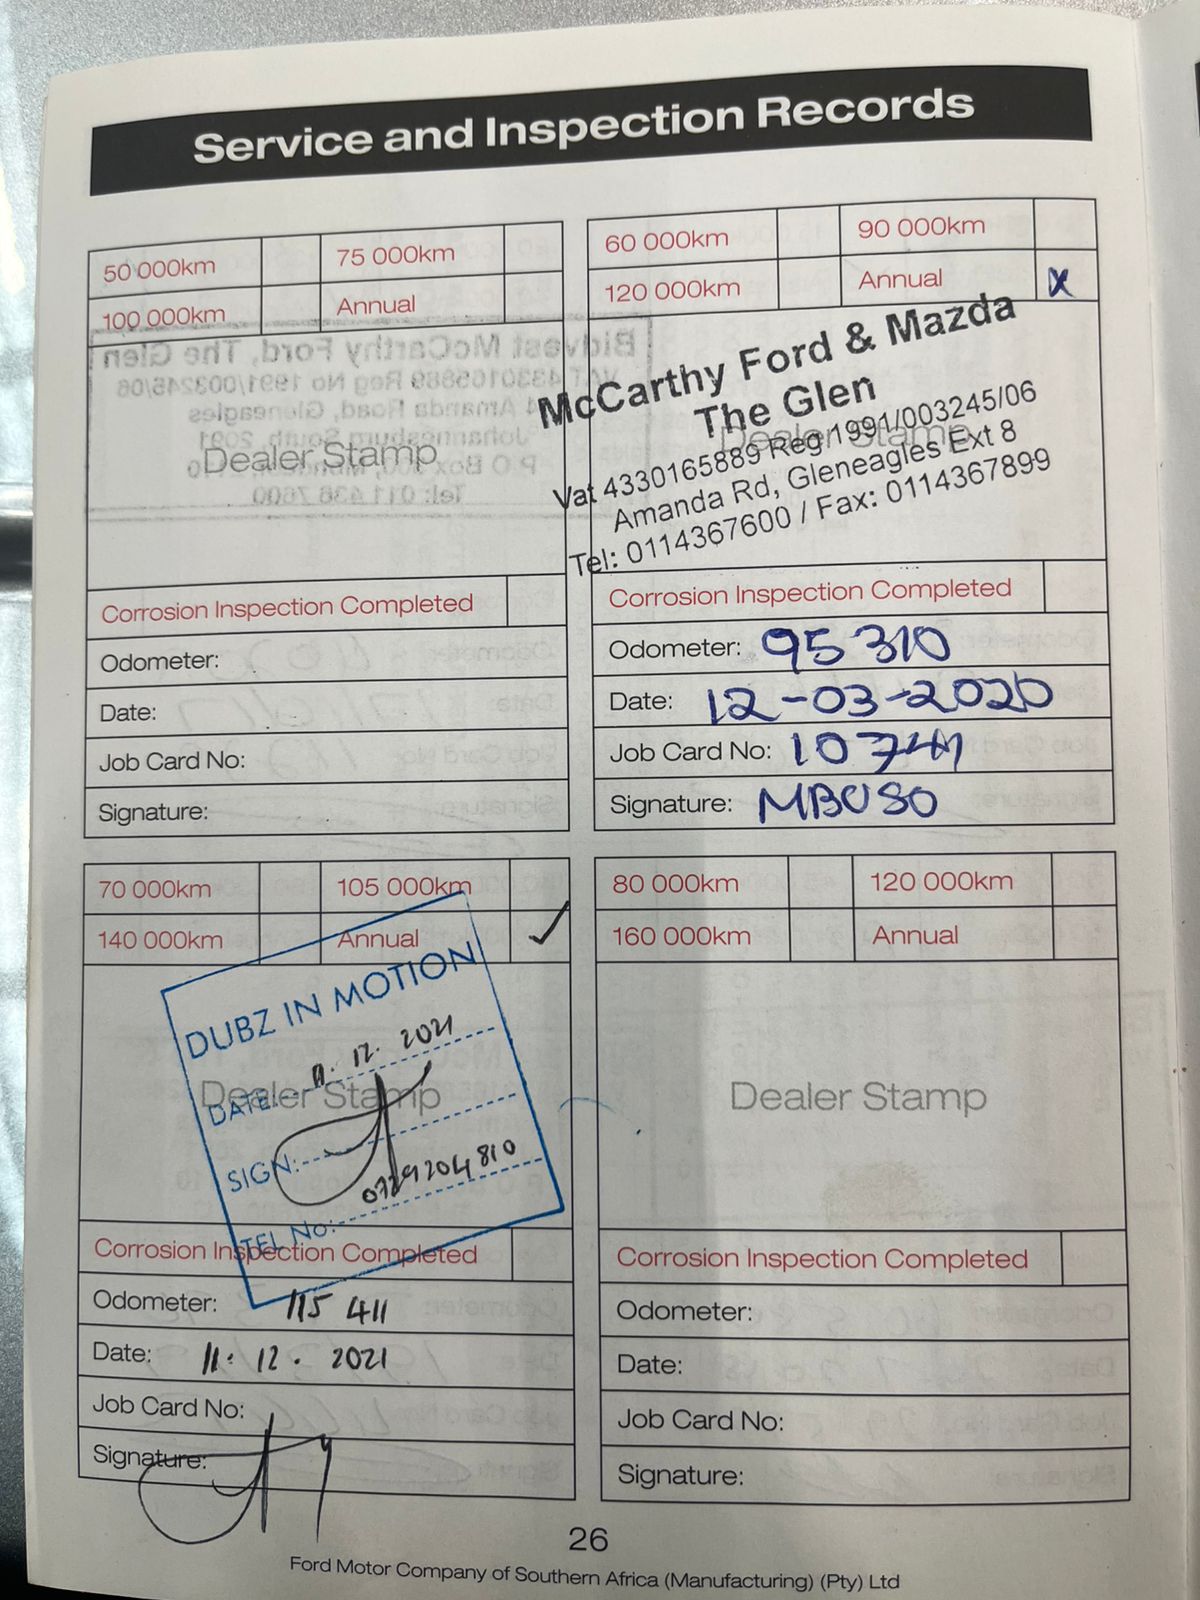 Service and Inspection Records
50 000km 75 000km
100 000km Annual
Dealer Stamp
Corrosion Inspection Completed
Odometer:
Date:
Job Card No:
Signature:
60 000km 90 000km
120 000km Annual X
McCarthy Ford & Mazda
The Glen
Dealer Stamp
Vat 4330165889 Reg 1991/003245/06
Amanda Rd, Gleneagles Ext 8
Tel: 0114367600 / Fax: 0114367899
Corrosion Inspection Completed
Odometer: 95310
Date: 12-03-2020
Job Card No:
Signature: MBUSO
70 000km 105 000km
140 000km Annual ✓
DUBZ IN MOTION
Dealer Stamp
DATE: 11. 12. 2021
SIGN:
TEL No: 0729204810
Corrosion Inspection Completed
Odometer: 115 411
Date: 11. 12. 2021
Job Card No:
Signature:
80 000km 120 000km
160 000km Annual
Dealer Stamp
Corrosion Inspection Completed
Odometer:
Date:
Job Card No:
Signature:
26
Ford Motor Company of Southern Africa (Manufacturing) (Pty) Ltd